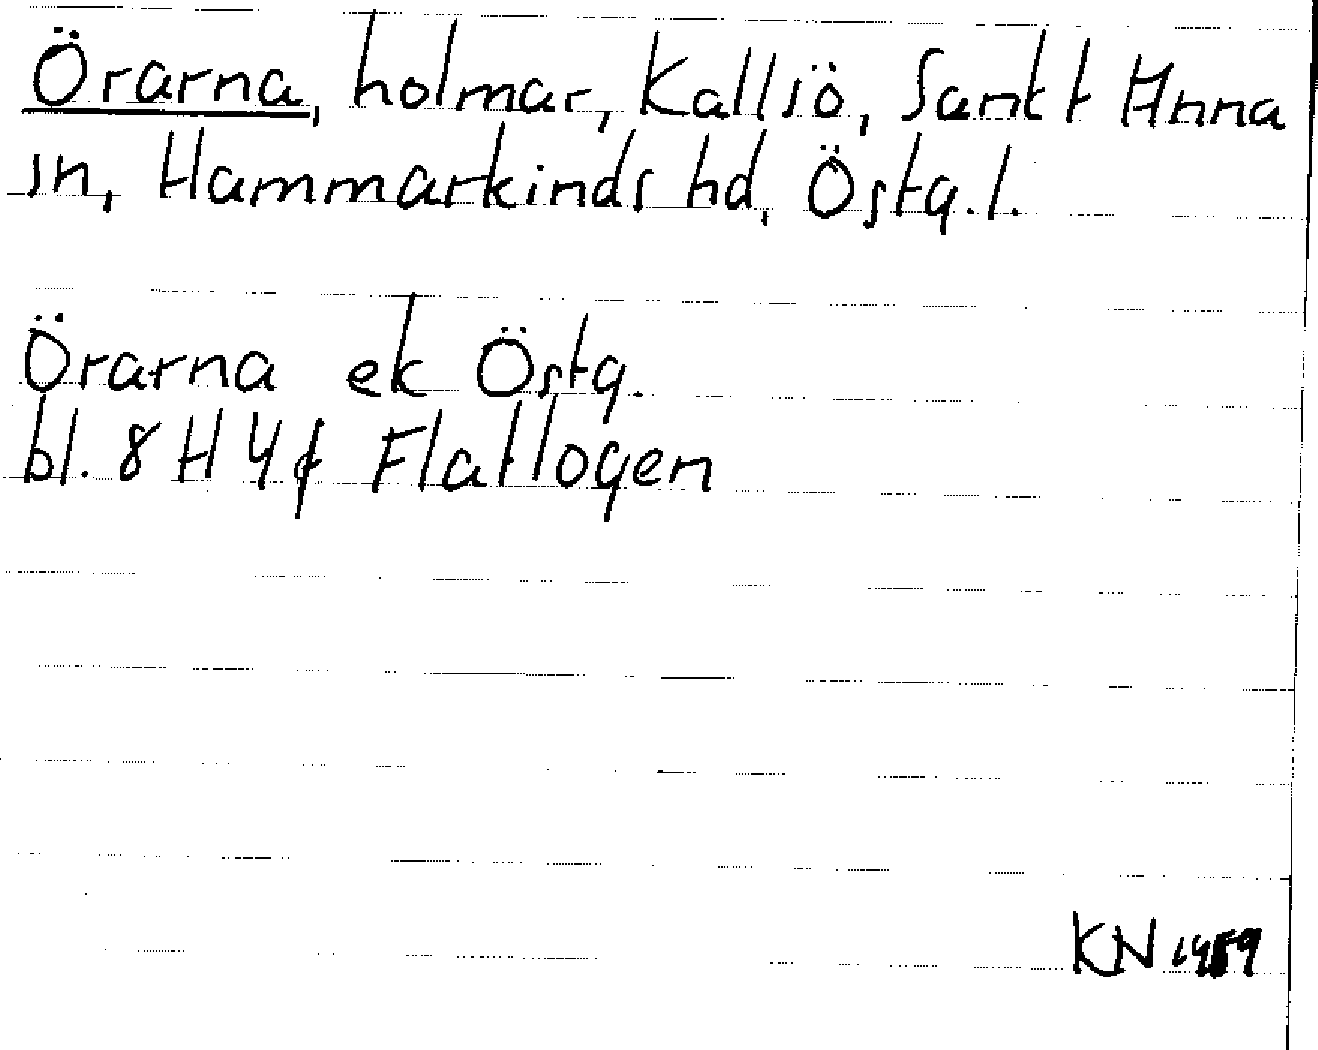 Örarna, holmar, Kallsö, Sankt Anna
sn, Hammarkinds hd, Östg.l.
Örarna ek Östg.
bl. 8 H 4 f Flatlogen
KN